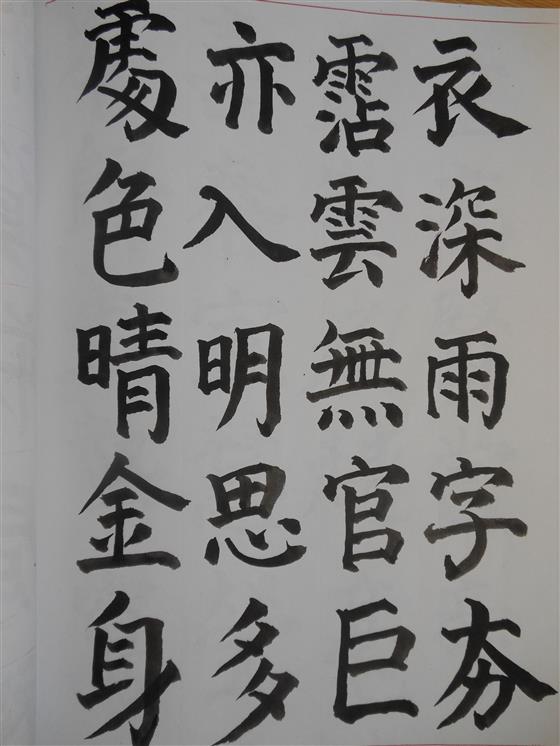 衣深雨字夯
霑雲無官巨
亦入明思多
處色晴金身